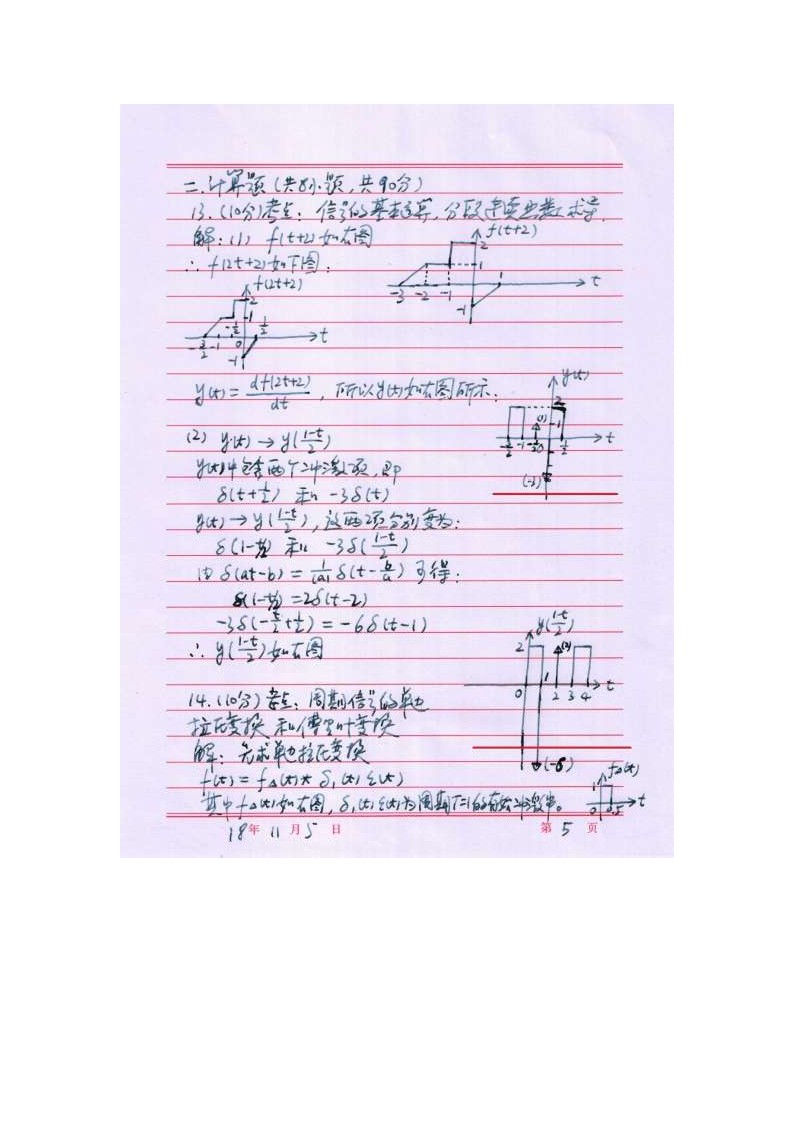 二.计算题(共8小题,共90分)
13.(10分)考点:信号的基本运算,分段连续函数求导.
解:(1) f(t+2)如右图
f(t+2)
2
1
-3 -2 -1 1 t
-1
∴ f(2t+2)如下图:
f(2t+2)
2
1
-3/2 -1 -1/2 0 1/2 t
-1
y(t) = df(2t+2)/dt , 所以y(t)如右图所示:
y(t)
2
(1)
1
-3/2 -1 -1/2 0 1/2 t
(-3)
(2) y(t) → y((1-t)/2)
y(t)中包含两个冲激项,即
δ(t+1/2) 和 -3δ(t)
y(t) → y((1-t)/2), 这两项分别变为:
δ(1-t/2) 和 -3δ((1-t)/2)
由 δ(at-b) = 1/|a| δ(t-b/a) 可得:
δ(1-t/2) = 2δ(t-2)
-3δ(-t/2+1/2) = -6δ(t-1)
∴ y((1-t)/2)如右图
y((1-t)/2)
2
(2)
0 1 2 3 4 t
(-6)
14.(10分)考点:周期信号的单边
拉氏变换和傅里叶变换
解:先求单边拉氏变换
f(t) = f△(t) * δ₁(t)ε(t)
其中f△(t)如右图, δ₁(t)ε(t)为周期T=1的有始冲激串。
f△(t)
1
0 0.5 t
18年 11月 5日
第 5 页